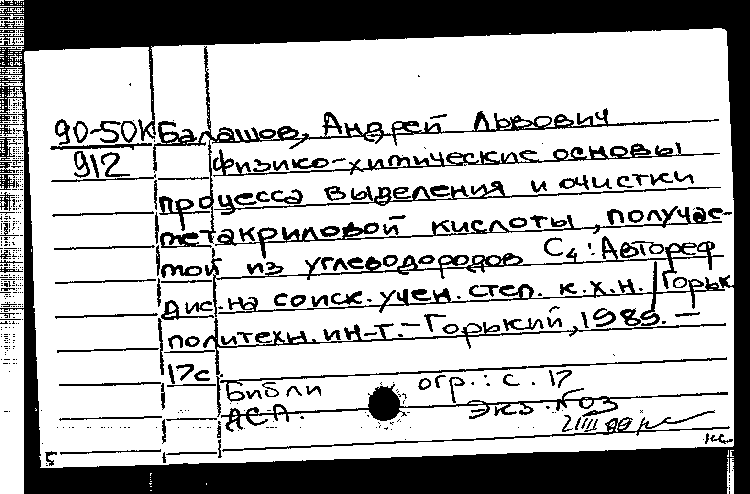 90-50К Балашов, Андрей Львович
912 Физико-химические основы
процесса выделения и очистки
метакриловой кислоты, получае-
мой из углеводородов C4: Автореф
дис. на соиск. учен. степ. к.х.н. / Горьк.
политехн. ин-т. - Горький, 1989. -
17с.
Библиогр.: с. 17
ДСА. Экз. №03
Б